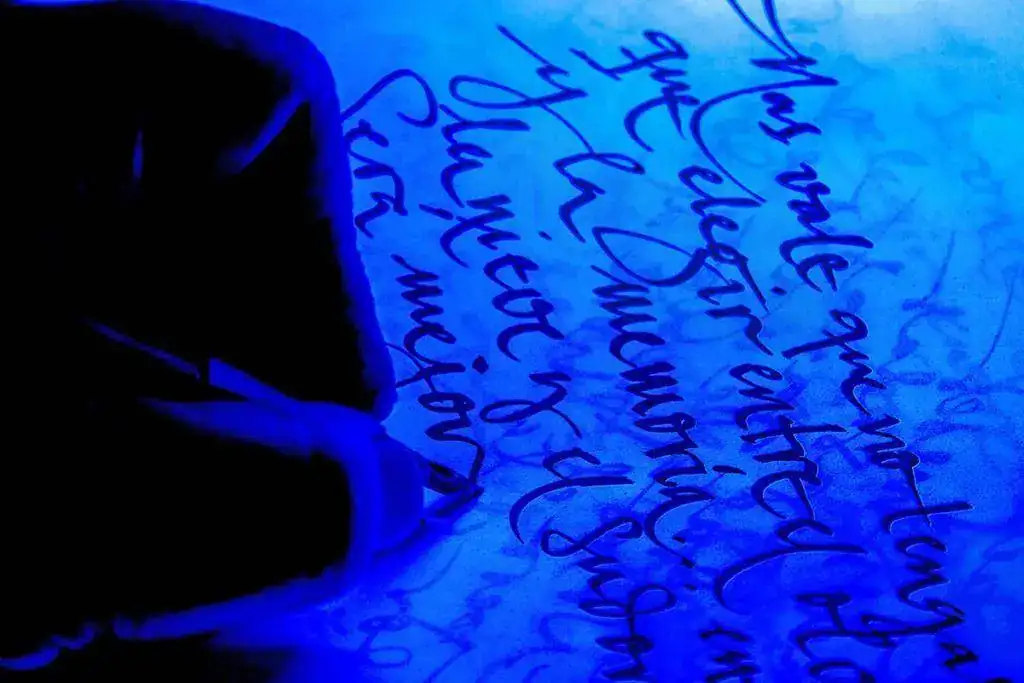 Mas vale que no tenga
que elegir entre el
y la memoria, en
la nieve y el sudor
Será mejor